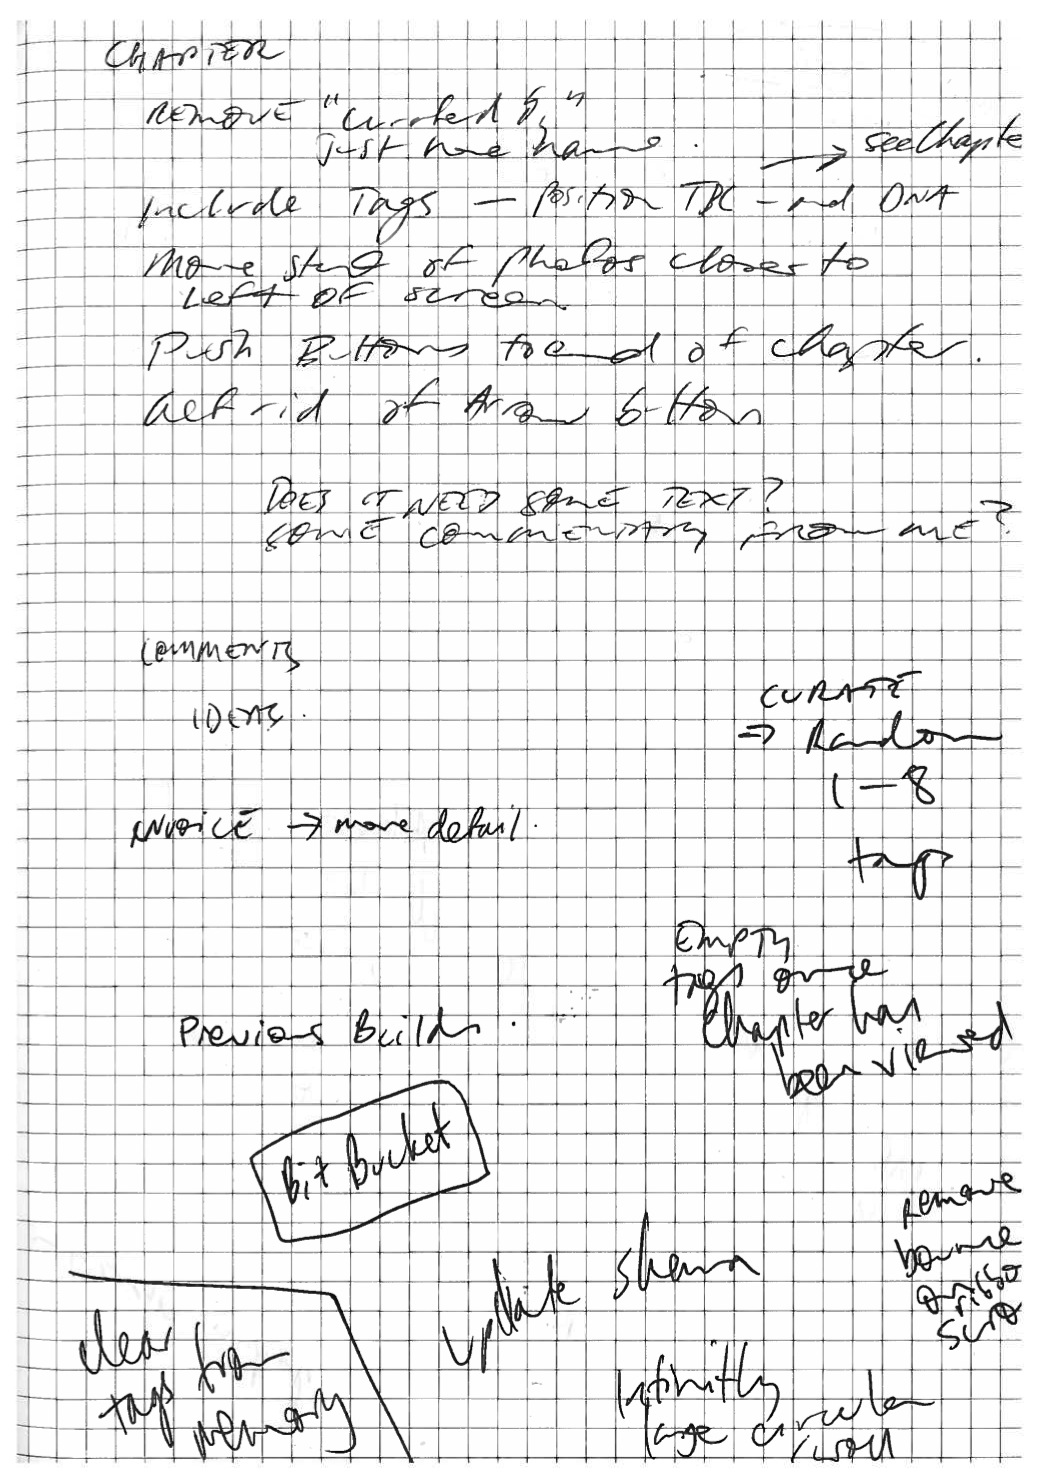 CHAPTER
REMOVE "curated by"
just have name.
→ see Chapte
Include Tags — Position TBC - and DNA
Move start of photos closer to
Left of screen
Push Buttons to end of chapter.
Get rid of Arrow button
DOES IT NEED SOME TEXT?
SOME COMMENTARY FROM ME?
COMMENTS
IDEAS.
CURATE
⇒ Random
1 — 8
tags
INVOICE → more detail.
EMPTY
tags once
Chapter has
been viewed
Previous Builds.
Bit Bucket
remove
bounce
on
scro
update
clear
tags from
memory
Infinitly
large circular
scroll